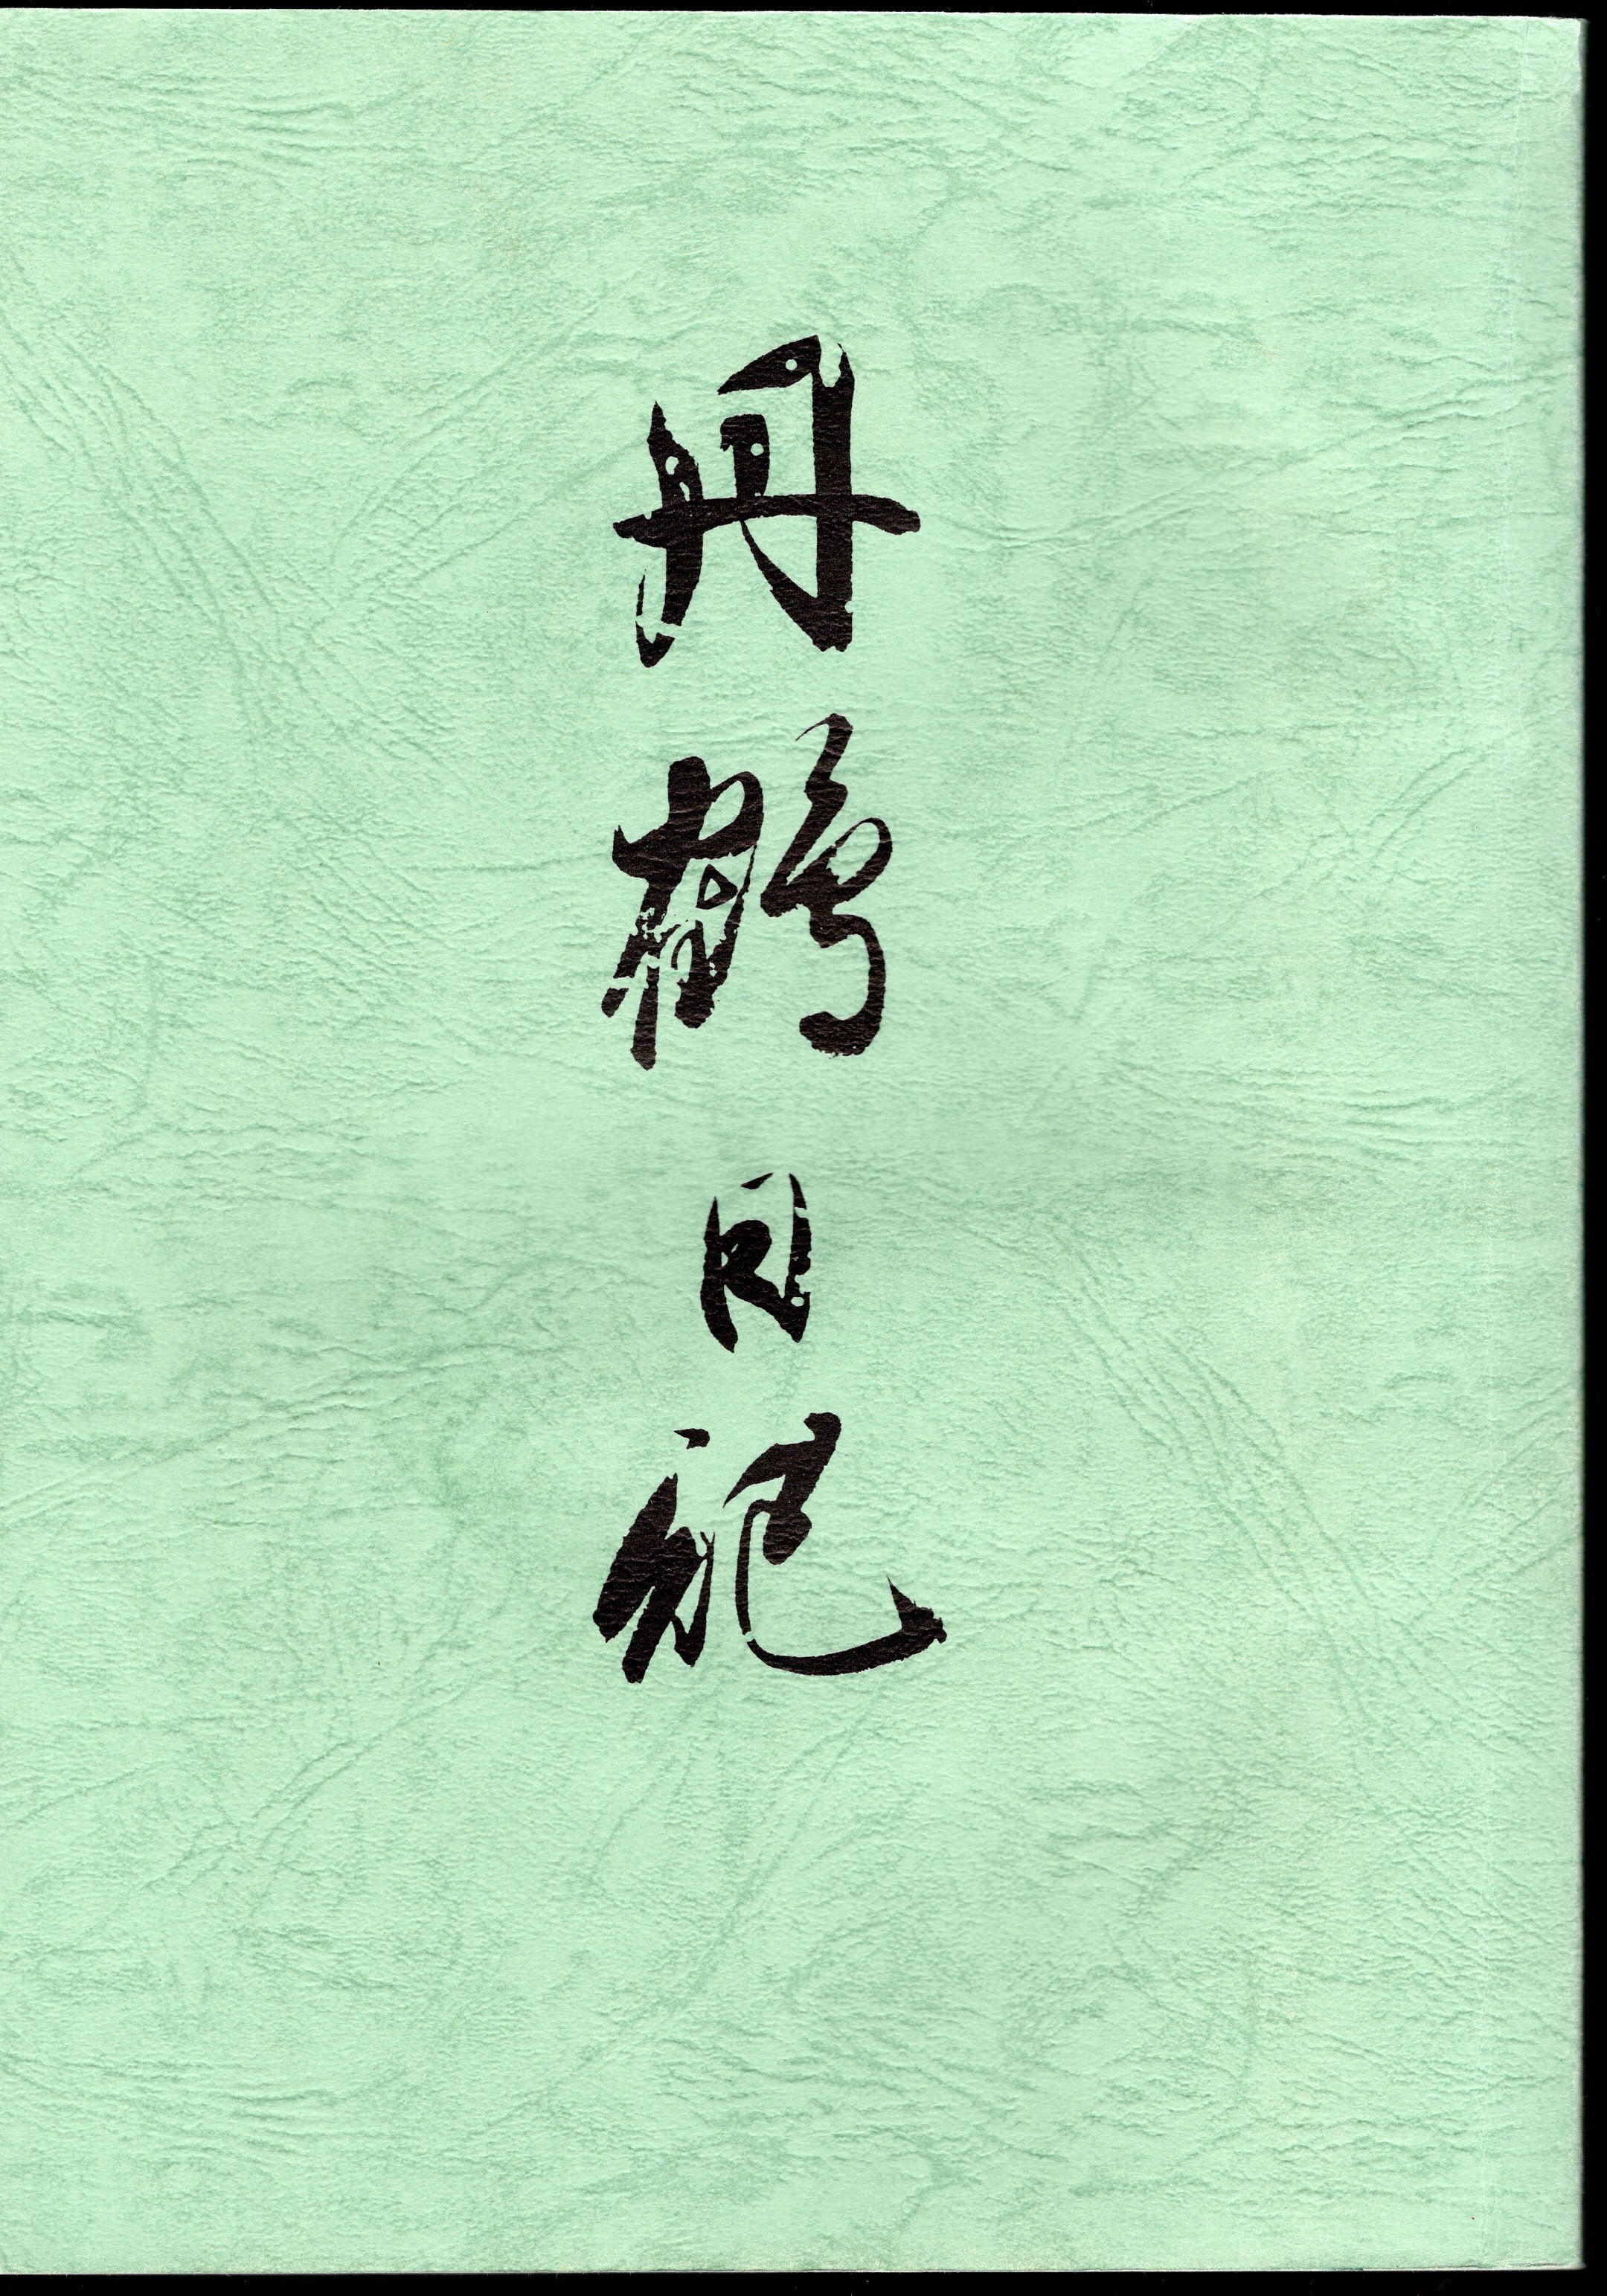 丹鶴日記